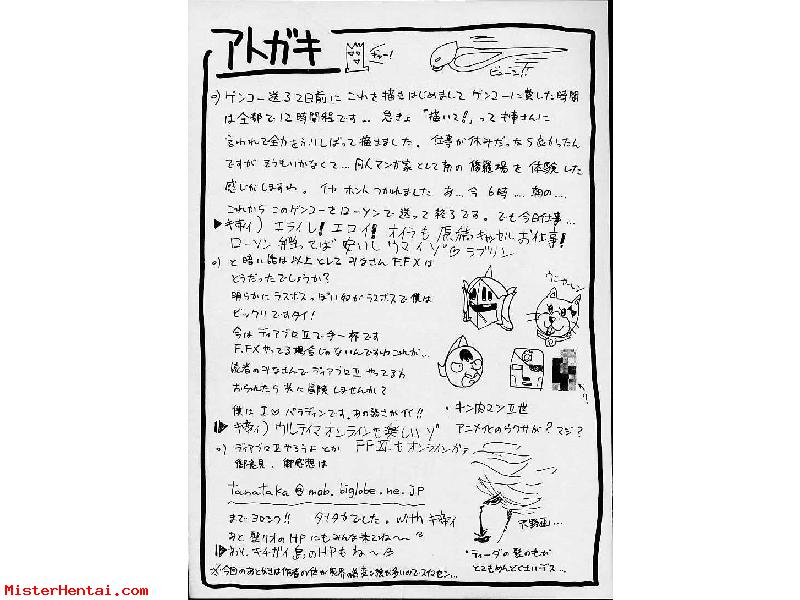 アトガキ
チャー!
ビューン!!
ゲンコー送る2日前にこれを描きはじめまして ゲンコーに費した時間
は全部で12時間程です.. 急きょ「描いて!」って姉さんに
言われて全力をふりしぼって描きました。仕事が休みだったら良かったん
ですが そうもいかなくて… 同人マンガ家として 真の修羅場を体験した
感じがしますね。イヤ ホント つかれました あ…今6時….朝の…
これからこのゲンコーをローソンで送って終了です。でも今日仕事…
エライし! エロイ! オイラも原稿 お仕事!
ローソン 安いし ウマイゾ
と 暗い話は以上として みなさん F.FXは
どうだったでしょうか?
明らかにラスボスっぽいのがラスボスで僕は
ビックリですタイ!
今はディアブロIIで手一杯です
F.FXやってる場合じゃないんですねこれが…
読者のみなさんでディアブロII やってる方
おられたら 共に冒険しませんか?
僕は I♡パラディンです。
ウルティマオンラインも楽しいゾ
ディアブロIIやろうよ とか FFXIもオンラインだよ
御意見、御感想は
tanataka@mob.biglobe.ne.jp
まで ヨロシク!! タナタカでした。with
のHPにもみんな来てね〜
のHPもね〜
※今回のあとがきは作者の
・キン肉マンII世
アニメ化のウワサが? マジ?
・ティーダの髪の毛が
とてもめんどくさいデス…
MisterHentai.com
MisterHentai.com